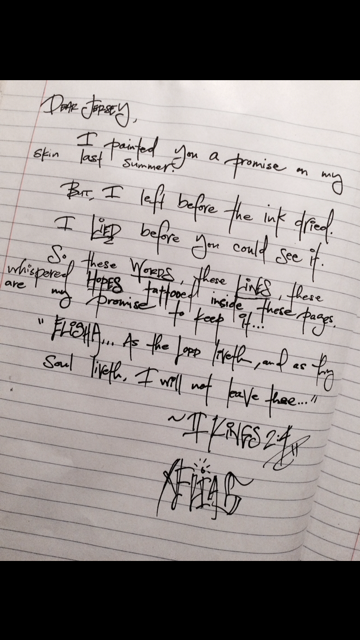 Dear Jersey,
I painted you a promise on my
skin last summer.
But, I left before the ink dried.
I LIED before you could see it.
So these WORDS, these LINES, these
whispered HOPES tattooed inside these pages.
are my promise to keep it...
"ELISHA... As the LORD liveth, and as thy
Soul liveth, I will not leave thee..."
~ II KINGS 2:4